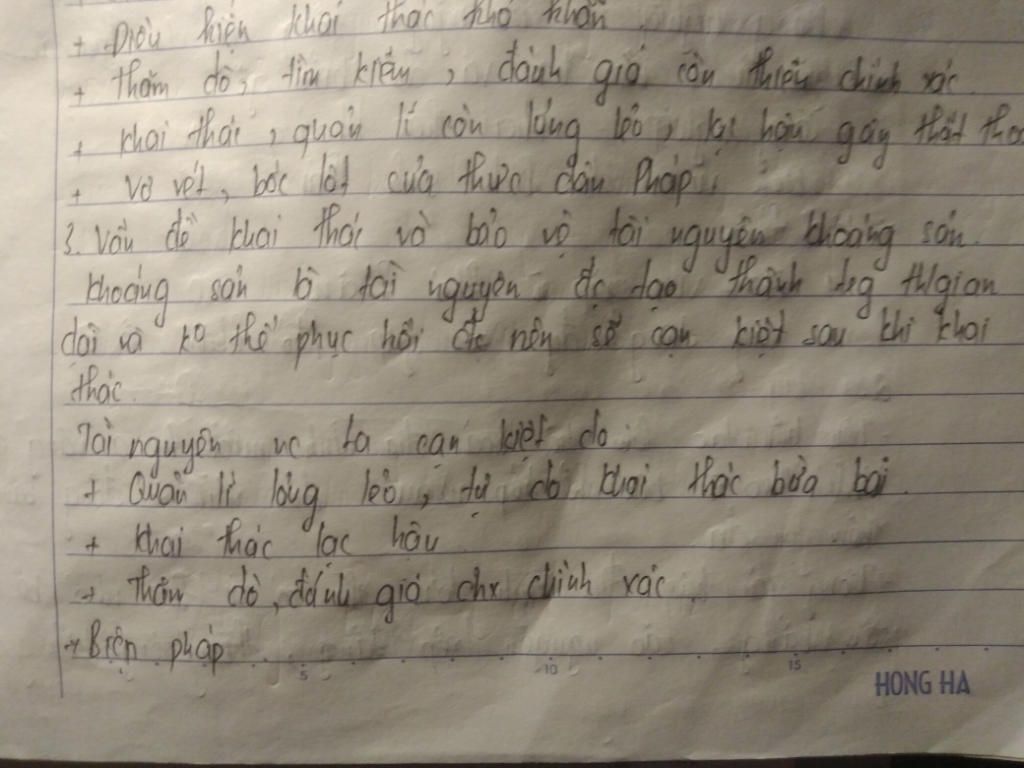 + Điều kiện khai thác khó khăn.
+ thăm dò, tìm kiếm, đánh giá còn thiếu chính xác.
+ khai thác, quản lí còn lỏng lẻo, lạc hậu gây thất tho
+ vơ vét, bóc lột của thực dân Pháp.
3. Vấn đề khai thác và bảo vệ tài nguyên khoáng sản.
khoáng sản là tài nguyên đc tạo thành trg th/gian
dài và ko thể phục hồi đc nên sẽ cạn kiệt sau khi khai
thác.
Tài nguyên nc ta cạn kiệt do
+ Quản lí lỏng lẻo, tự do khai thác bừa bãi.
+ khai thác lạc hậu
+ thăm dò, đánh giá chx chính xác.
Biện pháp
5 10 15
HONG HA